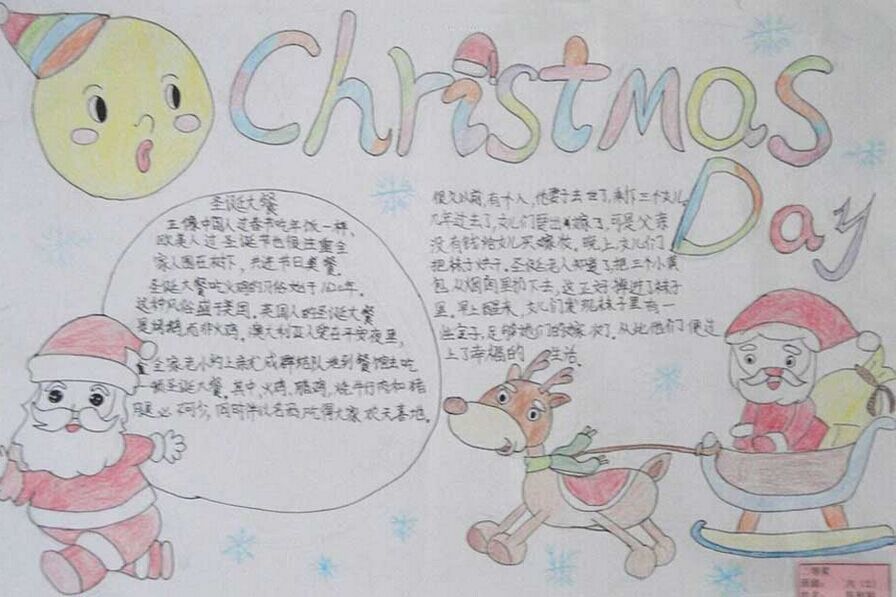 Christmas
Day
圣诞大餐
正像中国人过春节吃年饭一样、
欧美人过圣诞节也很注重全
家人围在树下,共进节日美餐.
圣诞大餐吃火鸡的习俗始于1620年.
这种风俗盛于美国.英国人的圣诞大餐
是烤鹅,而非火鸡.澳大利亚人爱在平安夜里,
全家老小约上亲友成群结队地到餐馆去吃
一顿圣诞大餐.其中,火鸡、腊鸡、烧牛仔肉和猪
腿必不可少,同时伴以名酒,吃得大家欢天喜地.
很久以前,有个人,他妻子去世了,剩下三个女儿,
几年过去了,女儿们要出嫁了,可是父亲
没有钱给女儿买嫁妆,晚上,女儿们
把袜子烘干.圣诞老人知道了,把三个小黄
包从烟囱里扔下去,这正好掉进了袜子
里.早上醒来,女儿们发现袜子里有一
些金子,足够她们的嫁妆了.从此他们便过
上了幸福的 生活.
二等奖
班级: 六(2)
姓名: